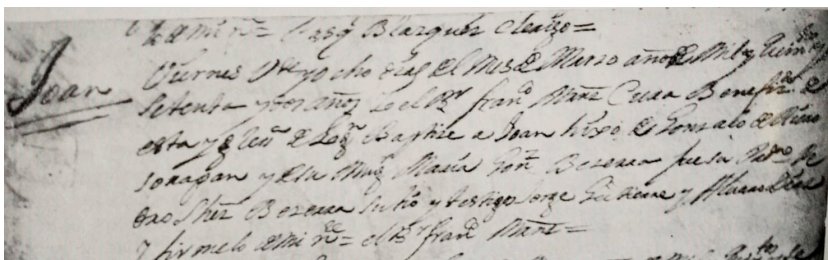 de mi ne = Blazquez Clerigo =
Joan
Viernes Vte y ocho dias del Mes de Marzo año de Mil y
setenta y dos años yo el Br franco Mrnz Cura Benefdo de
esta ygla de Logn Baptice a Joan hixo de Gonzalo de Riero
sorapan y de su Mugr Maria Gonz Bezerra fue su Padno Pe
dro Shez Bezerra su tio y testigos Jorge Gutierrez y Alvaro Diaz
y firmelo de mi ne = el Br franco Mrnz =